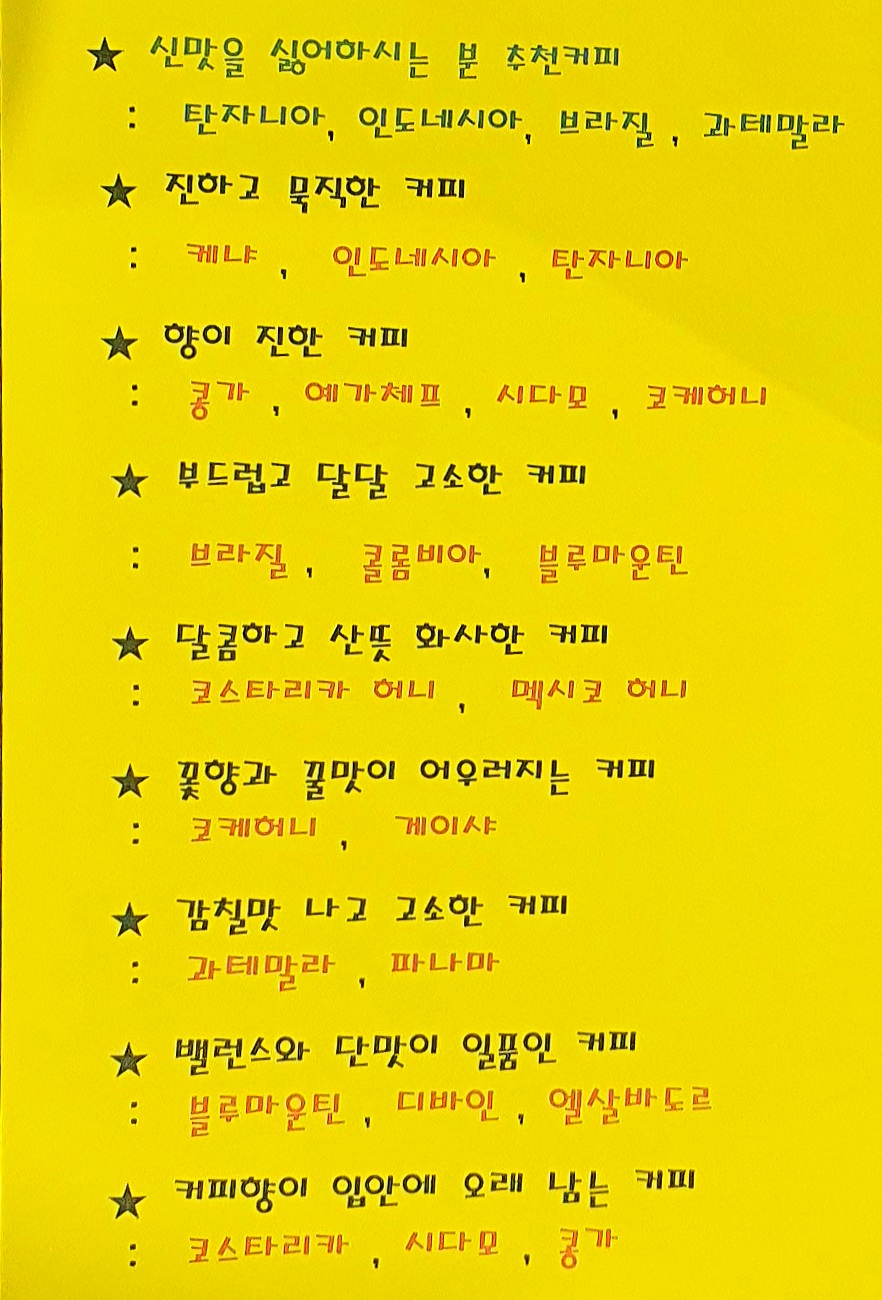 ★ 신맛을 싫어하시는 분 추천커피
: 탄자니아, 인도네시아, 브라질, 과테말라
★ 진하고 묵직한 커피
: 케냐, 인도네시아, 탄자니아
★ 향이 진한 커피
: 콩가, 예가체프, 시다모, 코케허니
★ 부드럽고 달달 고소한 커피
: 브라질, 콜롬비아, 블루마운틴
★ 달콤하고 산뜻 화사한 커피
: 코스타리카 허니, 멕시코 허니
★ 꽃향과 꿀맛이 어우러지는 커피
: 코케허니, 게이샤
★ 감칠맛 나고 고소한 커피
: 과테말라, 파나마
★ 밸런스와 단맛이 일품인 커피
: 블루마운틴, 디바인, 엘살바도르
★ 커피향이 입안에 오래 남는 커피
: 코스타리카, 시다모, 콩가